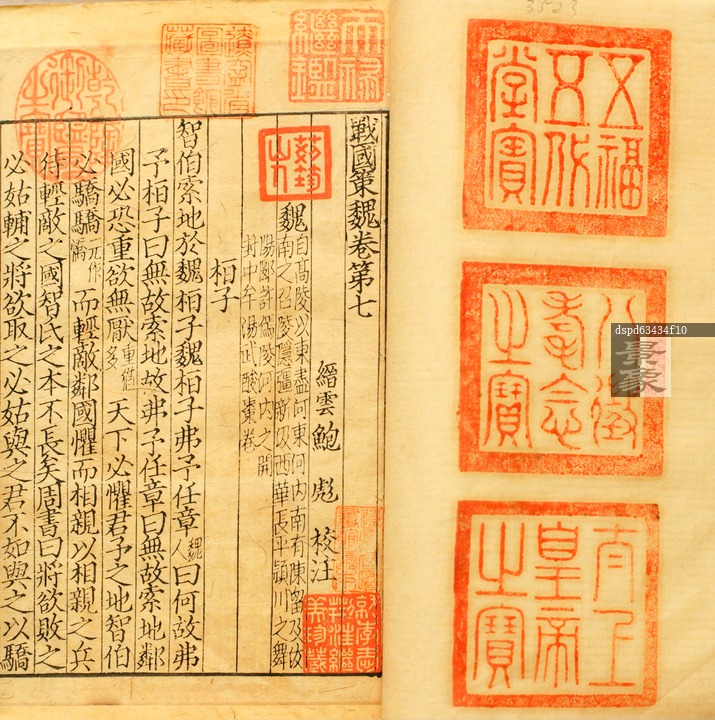 3523
五福五代堂寶
八徵耄念之寶
太上皇帝之寶
dspd63434f10
景象
天祿繼鑑
乾隆御覽之寶
戰國策魏卷第七
縉雲鮑 彪 校注
魏 自高陵以東盡河東河内南有陳留及汝
南之召陵㶏彊新汲西華長平潁川之舞
陽郾許傿陵河内之開
封中牟陽武酸棗卷
桓子
智伯索地於魏桓子魏桓子弗予任章魏人曰何故弗
予桓子曰無故索地故弗予任章曰無故索地鄰
國必恐重欲無厭天下必懼君予之地智伯
必驕驕元作憍而輕敵鄰國懼而相親以相親之兵
待輕敵之國智氏之本不長矣周書曰將欲敗之
必姑輔之將欲取之必姑與之君不如與之以驕